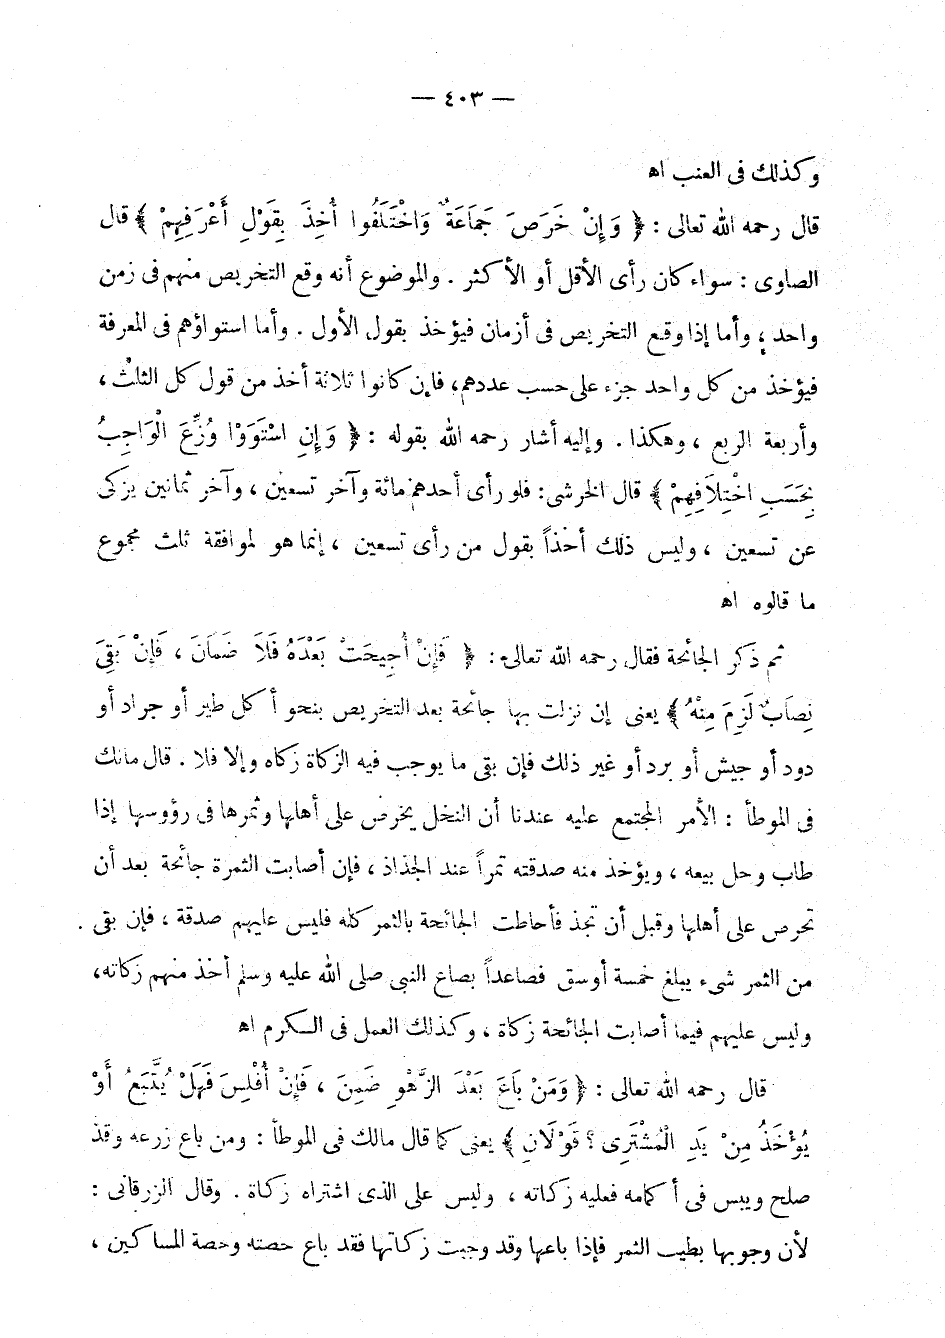 — ٤٠٣ —
وكذلك فى العنب اه
قال رحمه الله تعالى : ﴿ وَإِنْ خَرَصَ جَمَاعَةٌ وَاخْتَلَفُوا أُخِذَ بِقَوْلِ أَعْرَفِهِمْ ﴾ قال
الصاوى : سواء كان رأى الأقل أو الأكثر . والموضوع أنه وقع التخريص منهم فى زمن
واحد ، وأما إذا وقع التخريص فى أزمان فيؤخذ بقول الأول . وأما استواؤهم فى المعرفة
فيؤخذ من كل واحد جزء على حسب عددهم، فإن كانوا ثلاثة أخذ من قول كل الثلث ،
وأربعة الربع ، وهكذا . وإليه أشار رحمه الله بقوله : ﴿ وَإِنِ اسْتَوَوْا وُزِّعَ الْوَاجِبُ
بِحَسَبِ اخْتِلَافِهِمْ ﴾ قال الخرشى : فلو رأى أحدهم مائة وآخر تسعين ، وآخر ثمانين يزكى
عن تسعين ، وليس ذلك أخذاً بقول من رأى تسعين ، إنما هو لموافقة ثلث مجموع
ما قالوه اه
ثم ذكر الجائحة فقال رحمه الله تعالى : ﴿ فَإِنْ أُجِيحَتْ بَعْدَهُ فَلَا ضَمَانَ ، فَإِنْ بَقِىَ
نِصَابٌ لَزِمَ مِنْهُ ﴾ يعنى إن نزلت بها جائحة بعد التخريص بنحو أكل طير أو جراد أو
دود أو جيش أو برد أو غير ذلك فإن بقى ما يوجب فيه الزكاة زكاه وإلا فلا . قال مالك
فى الموطأ : الأمر المجتمع عليه عندنا أن النخل يخرص على أهلها وثمرها فى رؤوسها إذا
طاب وحل بيعه ، ويؤخذ منه صدقته تمراً عند الجذاذ ، فإن أصابت الثمرة جائحة بعد أن
تخرص على أهلها وقبل أن تجذ فأحاطت الجائحة بالثمر كله فليس عليهم صدقة ، فإن بقى .
من الثمر شىء يبلغ خمسة أوسق فصاعداً بصاع النبى صلى الله عليه وسلم أخذ منهم زكاته،
وليس عليهم فيما أصابت الجائحة زكاة ، وكذلك العمل فى الكرم اه
قال رحمه الله تعالى : ﴿ وَمَنْ بَاعَ بَعْدَ الزَّهْوِ ضَمِنَ ، فَإِنْ أُفْلِسَ فَهَلْ يُتَّبَعُ أَوْ
يُؤْخَذُ مِنْ يَدِ الْمُشْتَرِى ؟ قَوْلَانِ ﴾ يعنى كما قال مالك فى الموطأ : ومن باع زرعه وقد
صلح ويبس فى أكمامه فعليه زكاته ، وليس على الذى اشتراه زكاة . وقال الزرقانى :
لأن وجوبها بطيب الثمر فإذا باعها وقد وجبت زكاتها فقد باع حصته وحصة المساكين ،